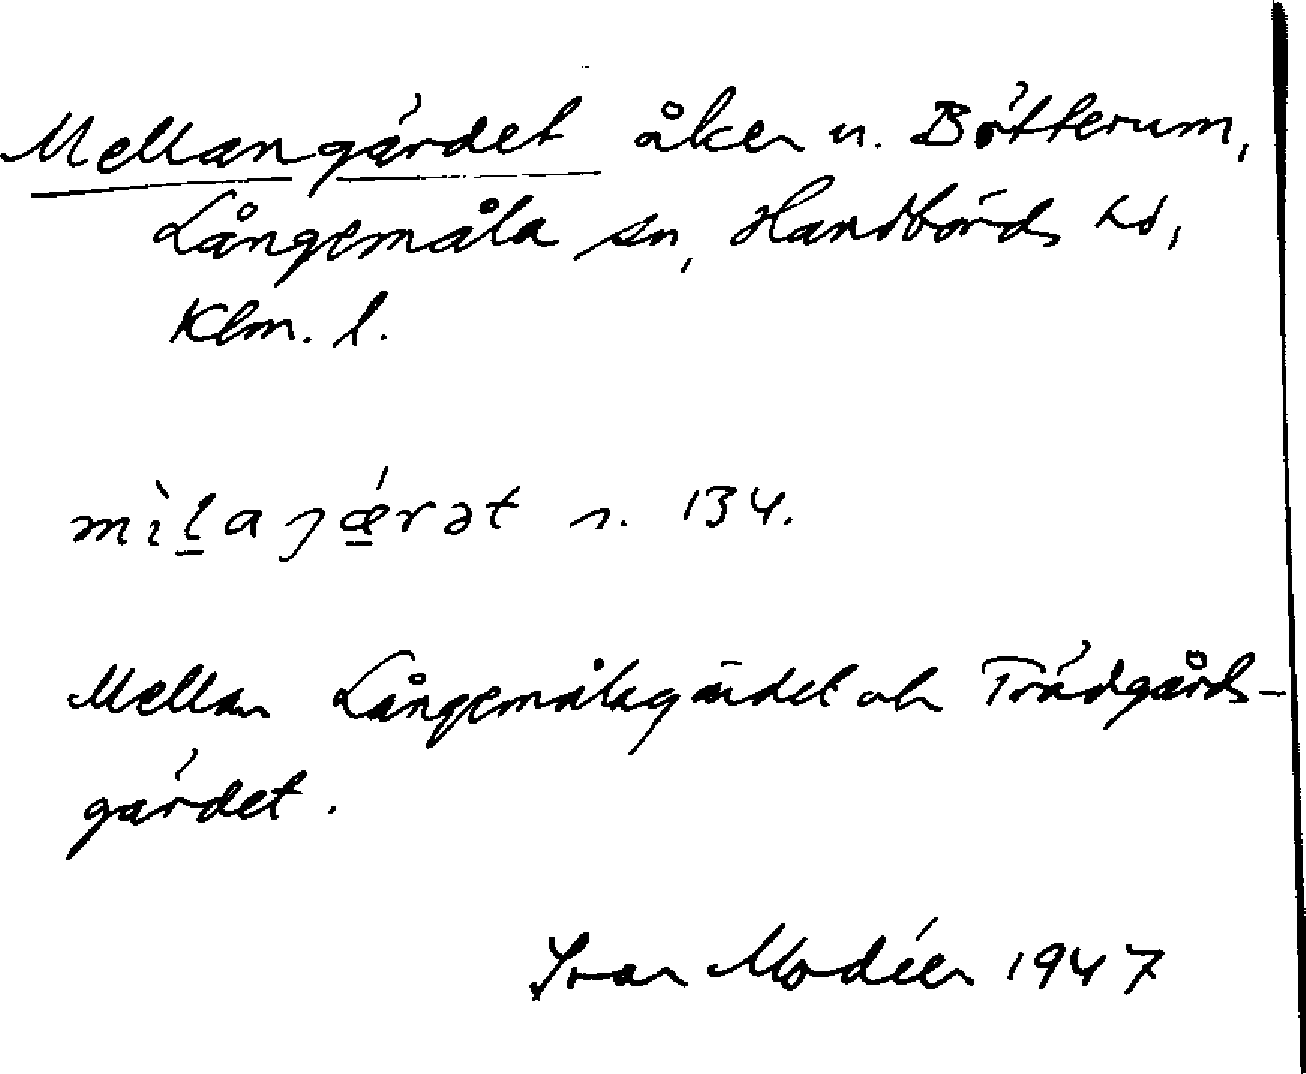 Mellangärdet åker n. Bötterum,
Långemåla sn, Handbörds hd,
Klm. l.
mìl̠aȷǽ̠rət n. 134.
Mellan Långemålagärdet och Trädgårds-
gärdet.
Ivar Modéer 1947